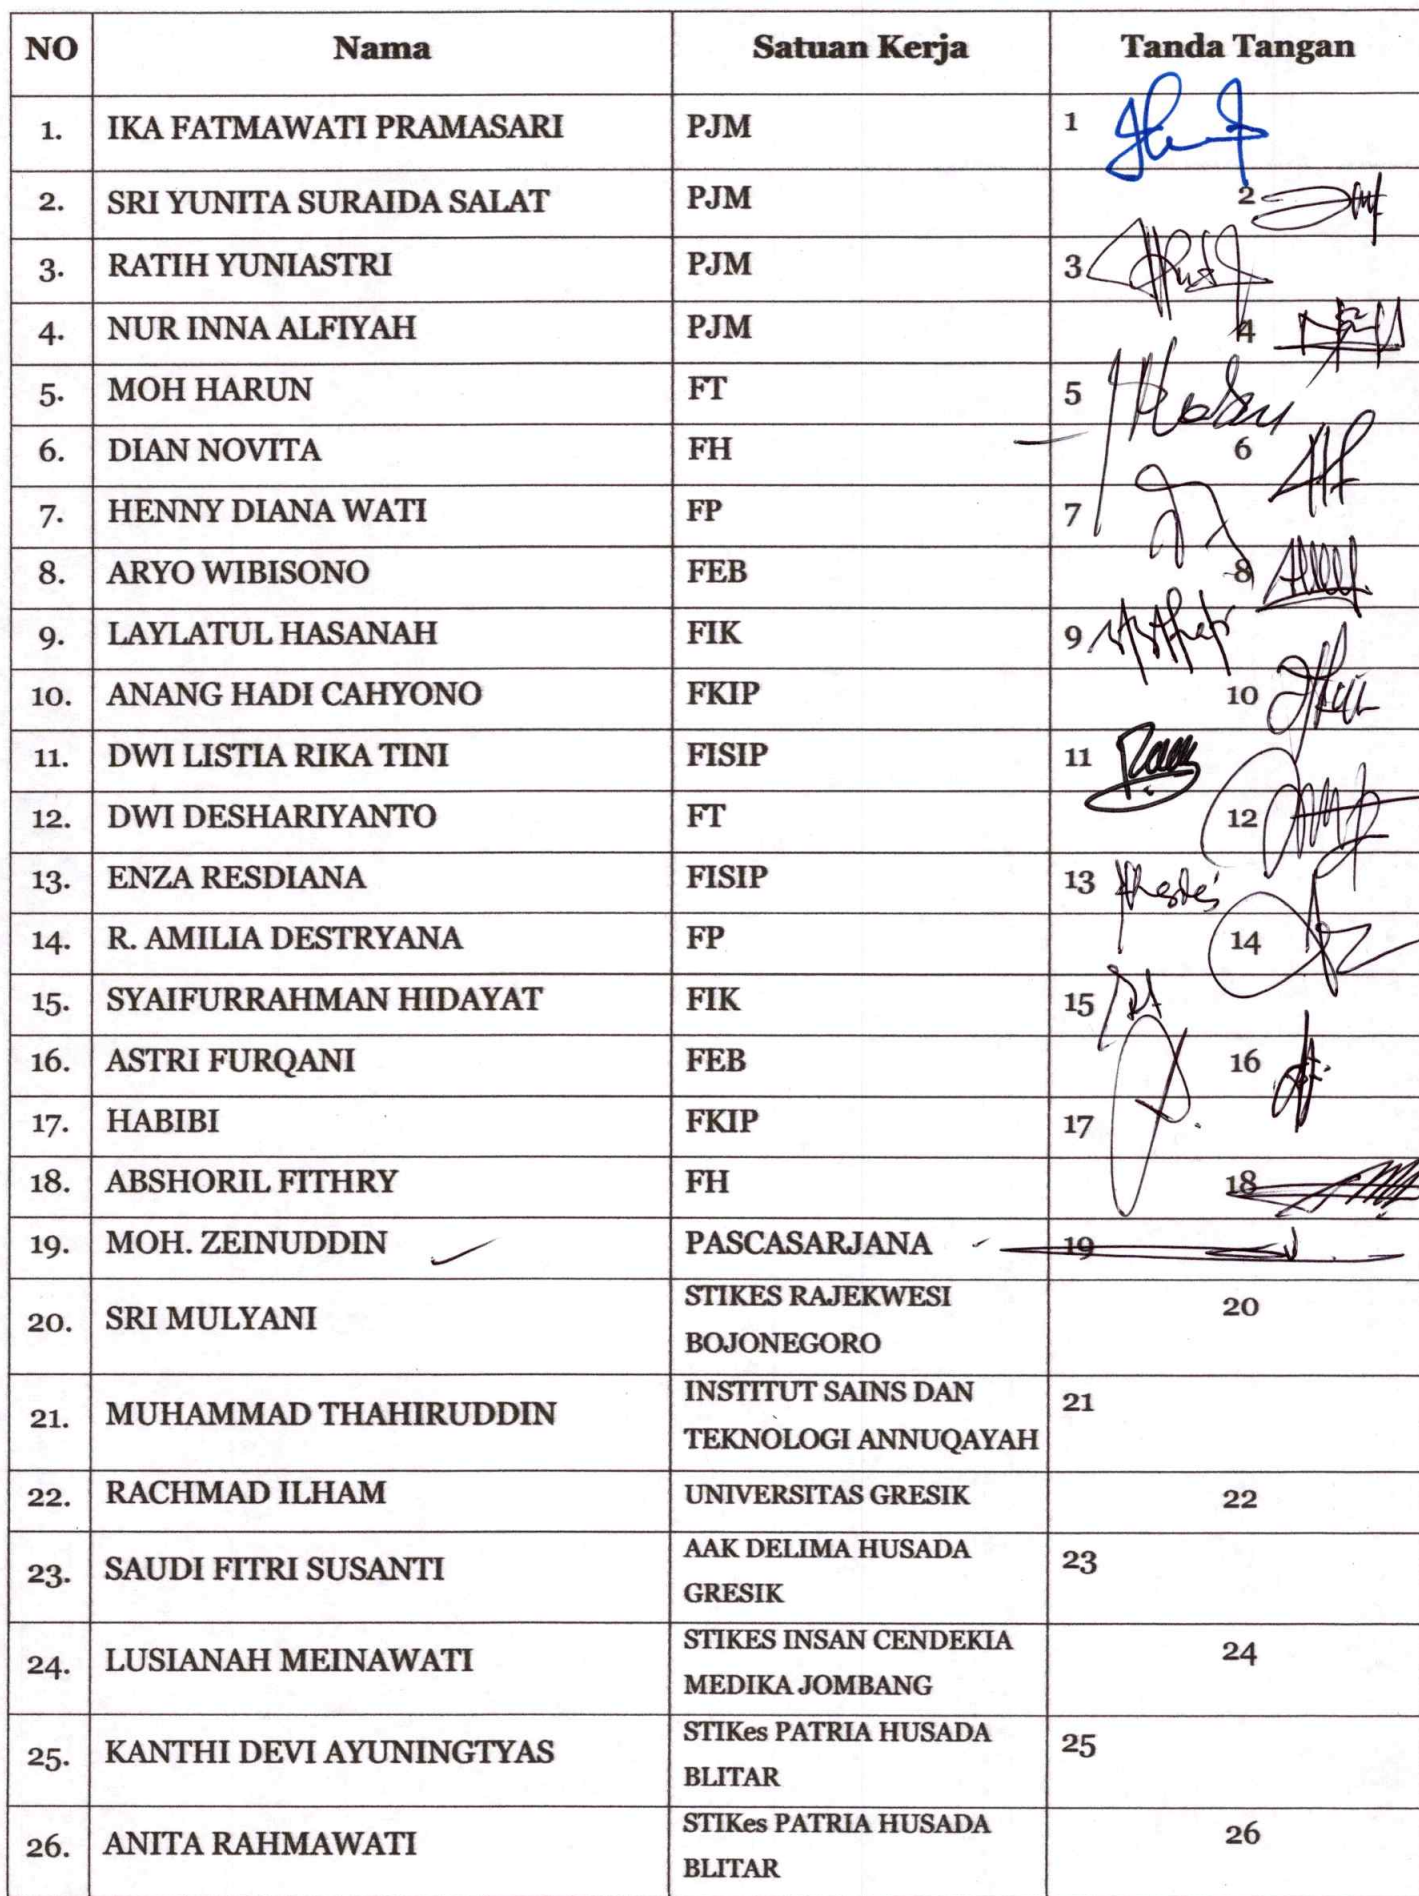 NO Nama Satuan Kerja Tanda Tangan
1. IKA FATMAWATI PRAMASARI PJM 1
2. SRI YUNITA SURAIDA SALAT PJM 2
3. RATIH YUNIASTRI PJM 3
4. NUR INNA ALFIYAH PJM 4
5. MOH HARUN FT 5
6. DIAN NOVITA FH 6
7. HENNY DIANA WATI FP 7
8. ARYO WIBISONO FEB 8
9. LAYLATUL HASANAH FIK 9
10. ANANG HADI CAHYONO FKIP 10
11. DWI LISTIA RIKA TINI FISIP 11
12. DWI DESHARIYANTO FT 12
13. ENZA RESDIANA FISIP 13
14. R. AMILIA DESTRYANA FP 14
15. SYAIFURRAHMAN HIDAYAT FIK 15
16. ASTRI FURQANI FEB 16
17. HABIBI FKIP 17
18. ABSHORIL FITHRY FH 18
19. MOH. ZEINUDDIN PASCASARJANA 19
20. SRI MULYANI STIKES RAJEKWESI 20
BOJONEGORO
21. MUHAMMAD THAHIRUDDIN INSTITUT SAINS DAN 21
TEKNOLOGI ANNUQAYAH
22. RACHMAD ILHAM UNIVERSITAS GRESIK 22
23. SAUDI FITRI SUSANTI AAK DELIMA HUSADA 23
GRESIK
24. LUSIANAH MEINAWATI STIKES INSAN CENDEKIA 24
MEDIKA JOMBANG
25. KANTHI DEVI AYUNINGTYAS STIKes PATRIA HUSADA 25
BLITAR
26. ANITA RAHMAWATI STIKes PATRIA HUSADA 26
BLITAR